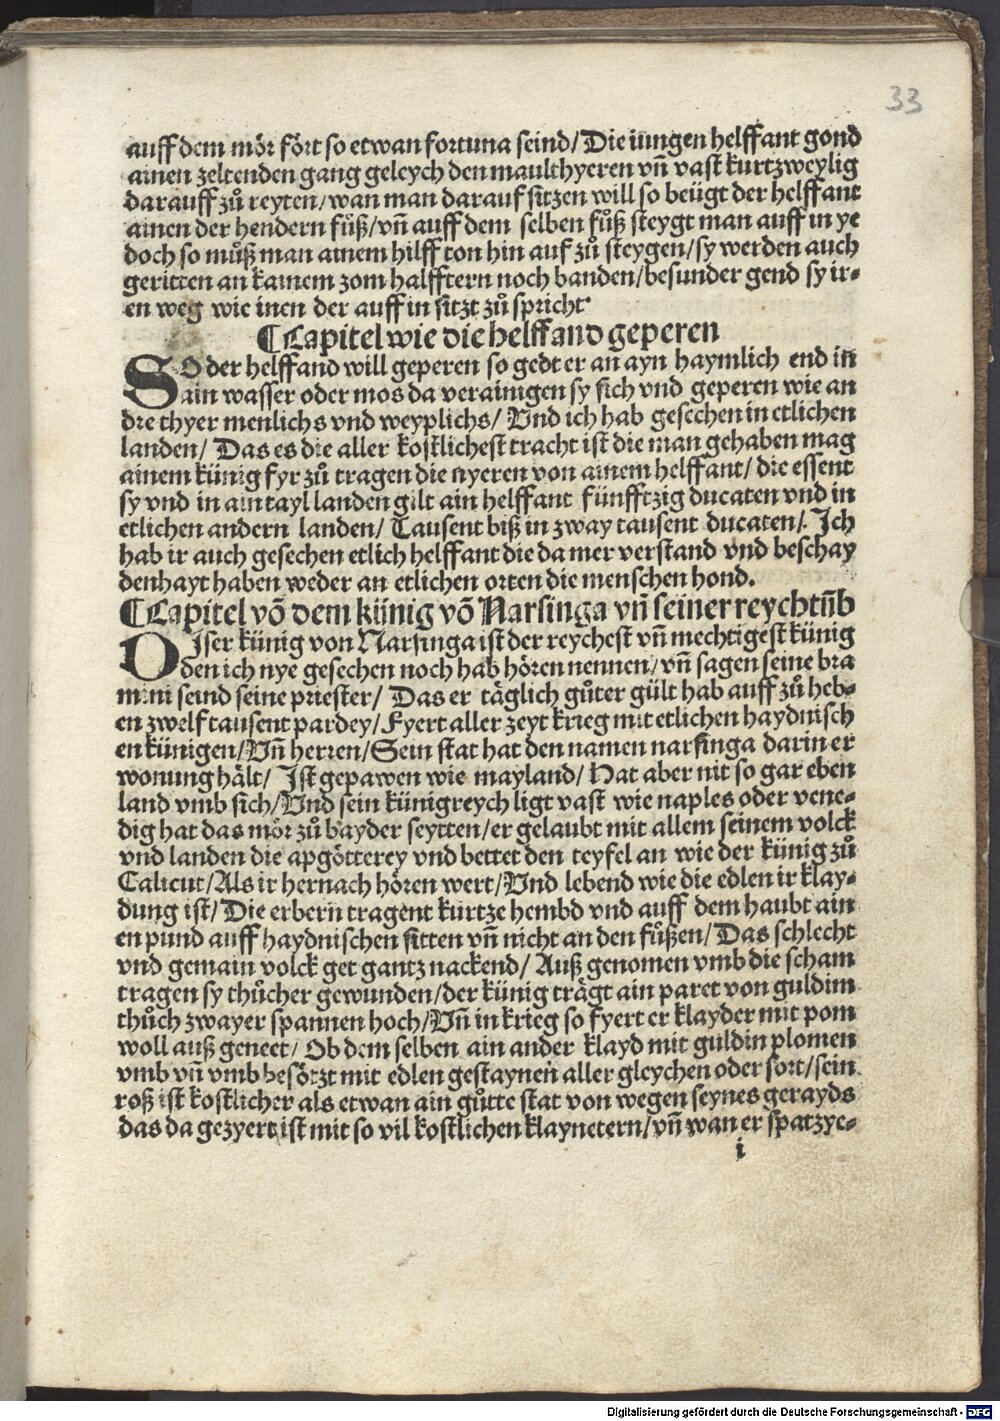 33
auff dem mör fört so etwan fortuna seind/ Die iungen helffant gond
ainen zeltenden gang geleych den maulthyeren vñ vast kurtzweylig
darauff zů reyten/wan man darauf sitzen will so beügt der helffant
ainen der hendern fůß/vñ auff dem selben fůß steygt man auff in ye
doch so můß man ainem hilff ton hin auf zů steygen/sy werden auch
geritten an kainem zom halfftern noch banden/besunder gend sy ir-
en weg wie inen der auff in sitzt zů spricht
¶Capitel wie die helffand geperen
SO der helffand will geperen so gedt er an ayn haymlich end in
ain wasser oder mos da verainigen sy sich vnd geperen wie an
dre thyer menlichs vnd weyplichs/ Vnd ich hab gesechen in etlichen
landen/ Das es die aller kostlichest tracht ist die man gehaben mag
ainem künig fyr zů tragen die nyeren von ainem helffant/ die essent
sy vnd in ain tayl landen gilt ain helffant fünfftzig ducaten vnd in
etlichen andern landen/ Tausent biß in zway tausent ducaten/. Ich
hab ir auch gesechen etlich helffant die da mer verstand vnd beschay
denhayt haben weder an etlichen orten die menschen hond.
¶Capitel võ dem künig võ Narsinga vñ seiner reychtũb
DIser künig von Narsinga ist der reychest vñ mechtigest künig
den ich nye gesechen noch hab hören nennen/vñ sagen seine bra
mini seind seine priester/ Das er täglich gůter gült hab auff zů heb-
en zwelf tausent pardey/Fyert aller zeyt krieg mit etlichen haydnisch
en künigen/Vñ herren/Sein stat hat den namen narsinga darin er
wonung hält/ Ist gepawen wie mayland/ Hat aber nit so gar eben
land vmb sich/Vnd sein künigreych ligt vast wie naples oder vene-
dig hat das mör zů bayder seytten/er gelaubt mit allem seinem volck
vnd landen die apgötterey vnd bettet den teyfel an wie der künig zů
Calicut/Als ir hernach hören wert/Vnd lebend wie die edlen ir klay-
dung ist/ Die erbern tragent kurtze hembd vnd auff dem haubt ain
en pund auff haydnischen sitten vñ nicht an den fůßen/ Das schlecht
vnd gemain volck get gantz nackend/ Auß genomen vmb die scham
tragen sy thůcher gewunden/der künig trägt ain paret von guldim
thůch zwayer spannen hoch/Vñ in krieg so fyert er klayder mit pom
woll auß geneet/ Ob dem selben ain ander klayd mit guldin plomen
vmb vñ vmb besötzt mit edlen gestaynen aller gleychen oder sort/sein
roß ist kostlicher als etwan ain gůtte stat von wegen seynes gerayds
das da gezyert ist mit so vil kostlichen klaynetern/vñ wan er spatzye-
i
Digitalisierung gefördert durch die Deutsche Forschungsgemeinschaft - DFG